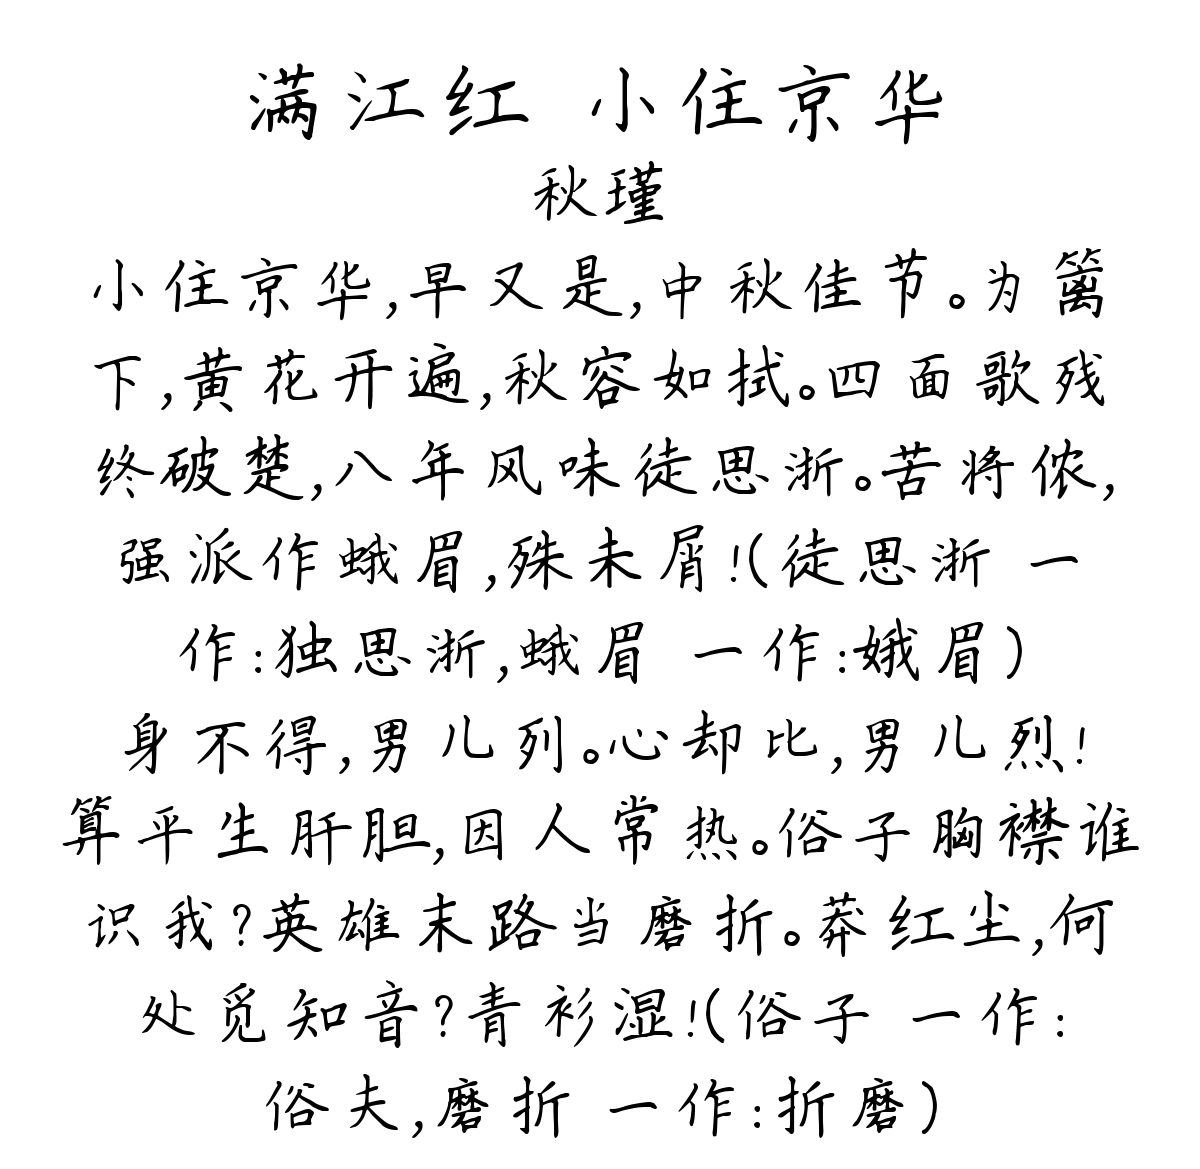 满江红 小住京华
秋瑾
小住京华,早又是,中秋佳节。为篱
下,黄花开遍,秋容如拭。四面歌残
终破楚,八年风味徒思浙。苦将侬,
强派作蛾眉,殊未屑!(徒思浙 一
作:独思浙,蛾眉 一作:娥眉)
身不得,男儿列。心却比,男儿烈!
算平生肝胆,因人常热。俗子胸襟谁
识我?英雄末路当磨折。莽红尘,何
处觅知音?青衫湿!(俗子 一作:
俗夫,磨折 一作:折磨)